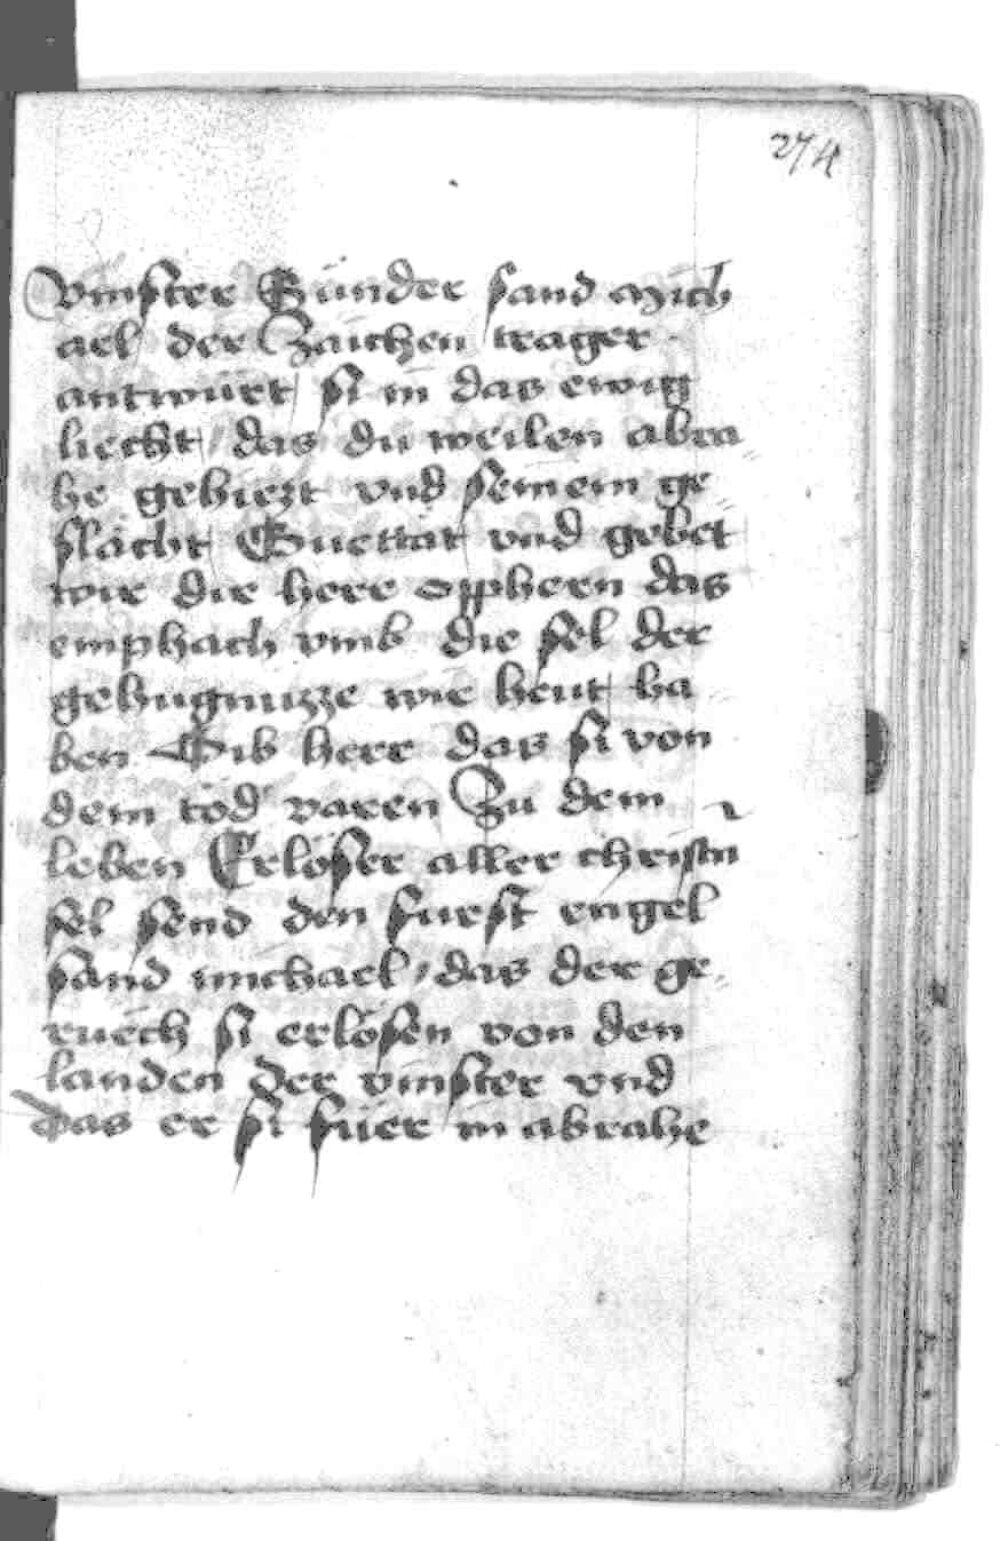 274
vinster Sünder sand Mich
ael der Zaichen trager
antwurt si in das ewig
liecht / das du weilen abra
he gehiezt vnd seinem ge
slächt Guettät vnd gebet
wir dir herr opphern das
emphach vmb die sel der
gehugnuzze wir heut ha
ben Gib herr das si von
dem tod varen Zu dem
leben Erlöser aller christn
sel send den furst engel
sand michael / das der ge
ruech si erlösen von den
landen der vinster vnd
das er si füer in abrahe